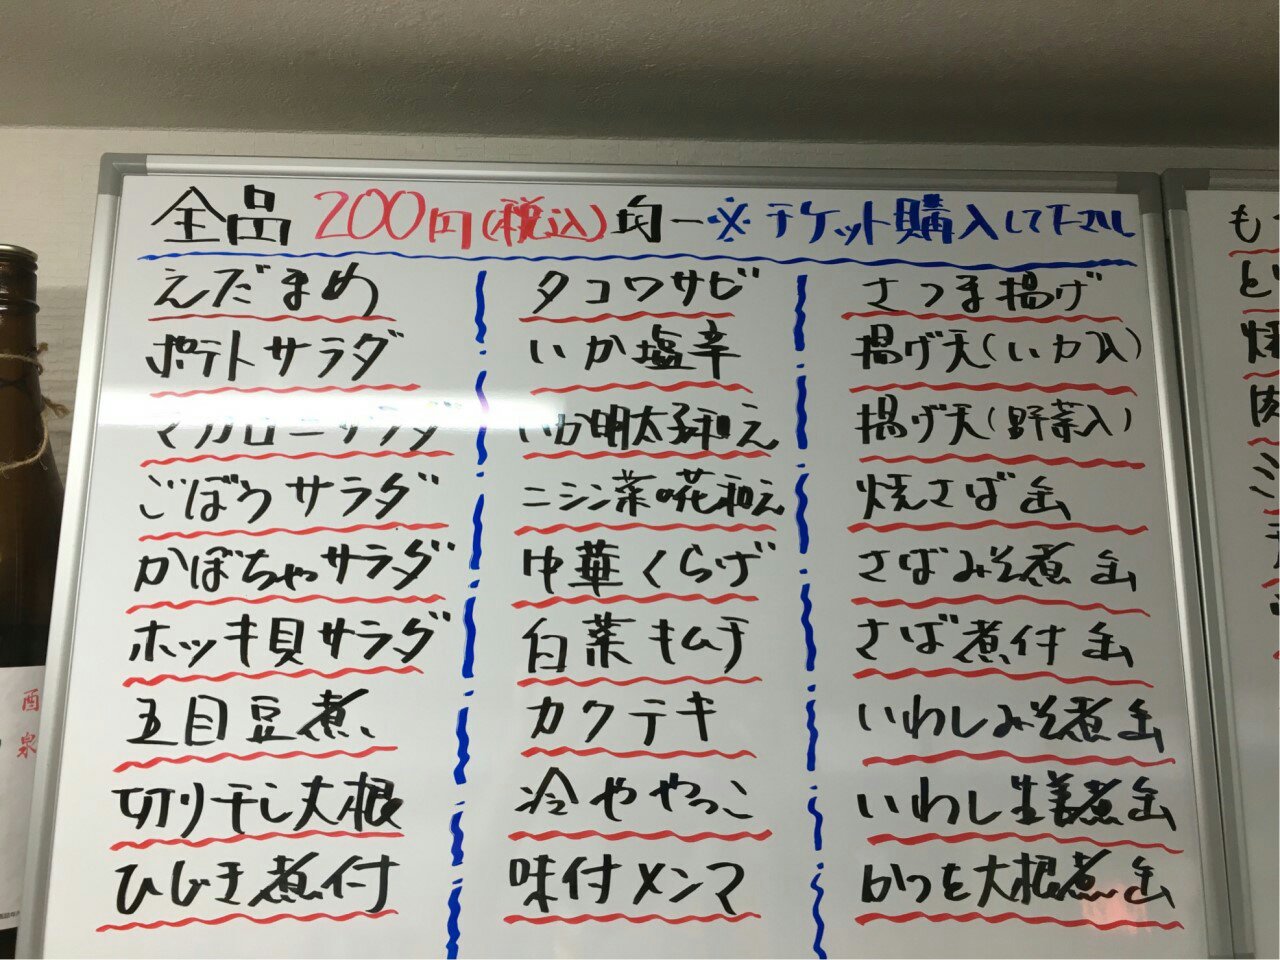 全品 200円(税込)均一※チケット購入して下マル
えだまめ
ポテトサラダ
マカロニサラダ
ごぼうサラダ
かぼちゃサラダ
ホッキ貝サラダ
五目豆煮
切り干し大根
ひじき煮付
タコワサビ
いか塩辛
いか明太子和え
ニシン菜の花和え
中華くらげ
白菜キムチ
カクテキ
冷ややっこ
味付メンマ
さつま揚げ
揚げ天(いか入)
揚げ天(野菜入)
焼さば缶
さばみそ煮缶
さば煮付缶
いわしみそ煮缶
いわし生姜煮缶
かつを大根煮缶
酉
泉